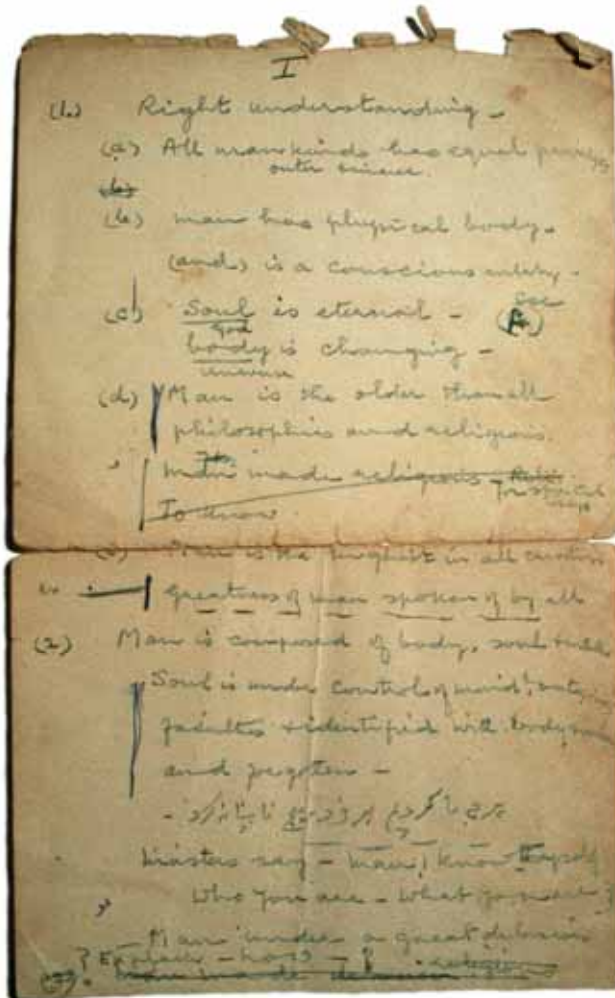 I
(1.) Right understanding -
(a) All mankind has equal privileges
outer
(b)
(b) man has physical body.
(and) is a conscious entity.
(c) Soul is eternal - See
God
body is changing -
universe
(d) Man is the older than all
philosophies and religions.
man made religions - for
To know
(e) Man is the highest in all creation
Greatness of man spoken of by all
(2) Man is composed of body, soul
Soul is under control of mind,
faculties & identified with body
and forgotten -
Masters say - Man, know thyself
Who you are - What you are
Man under a great delusion
? Explain - how -
(3).